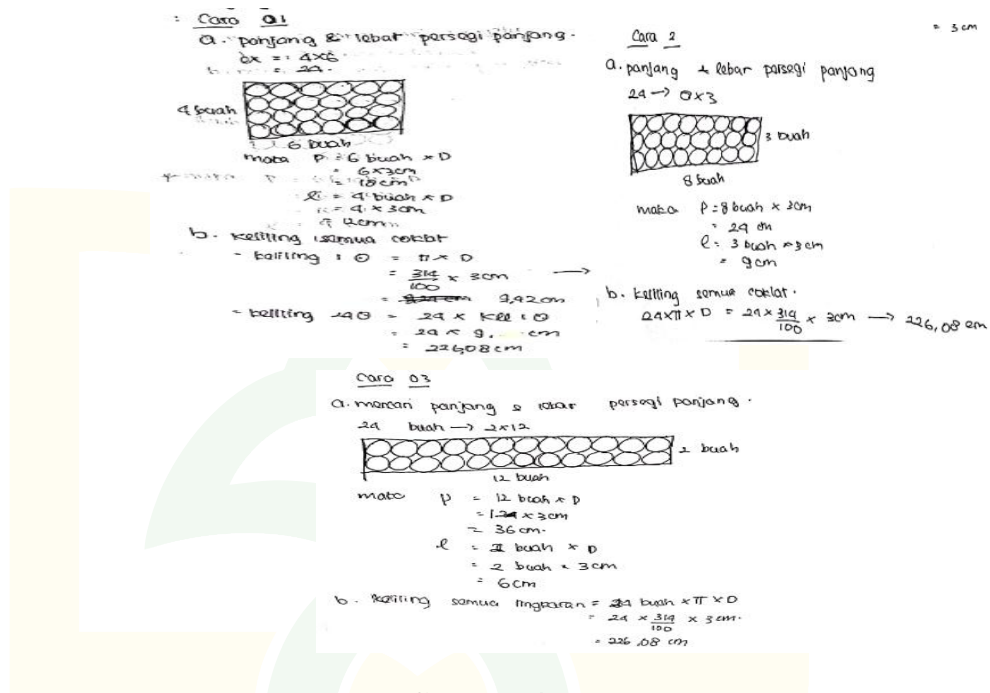 : Cara 01
a. panjang & lebar persegi panjang.
4x6
= 24.
4 buah
6 buah
maka P = 6 buah x D
= 6x3cm
= 18cm
l = 4 buah x D
= 4 x 3cm
12cm
b. keliling semua coklat
- keliling 1 O = π x D
= 314/100 x 3cm →
= 9,42cm
- keliling 24 O = 24 x kel 1 O
= 24 x 9, cm
= 226,08 cm
= 3 cm
Cara 2
a. panjang & lebar persegi panjang
24 → 8x3
3 buah
8 buah
maka P = 8 buah x 3cm
= 24 cm
l = 3 buah x 3cm
= 9cm
b. keliling semua coklat.
24 x π x D = 24 x 314/100 x 3cm → 226,08 cm
Cara 03
a. mencari panjang & lebar persegi panjang.
24 buah → 2x12
2 buah
12 buah
maka p = 12 buah x D
= 12 x 3cm
= 36 cm.
l = 2 buah x D
= 2 buah x 3cm
= 6cm
b. keliling semua lingkaran = 24 buah x π x D
= 24 x 314/100 x 3cm.
= 226,08 cm